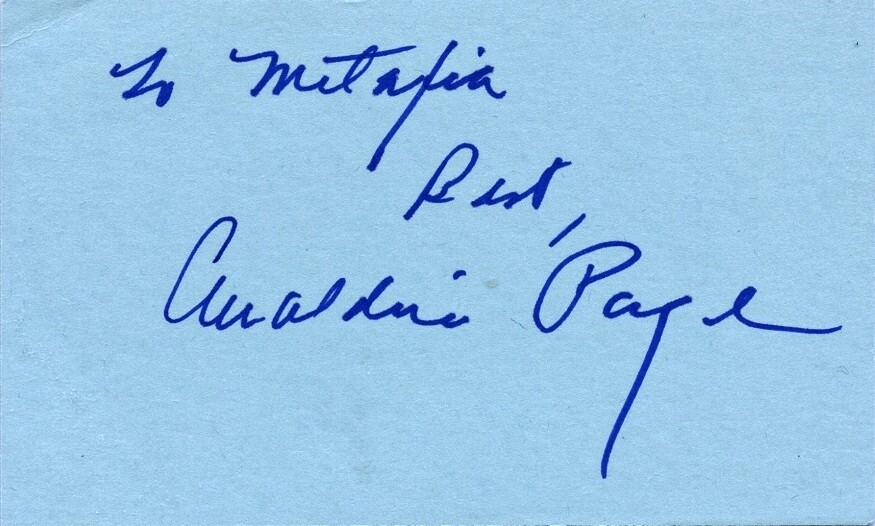 To Metafia
Best,
Geraldine Page